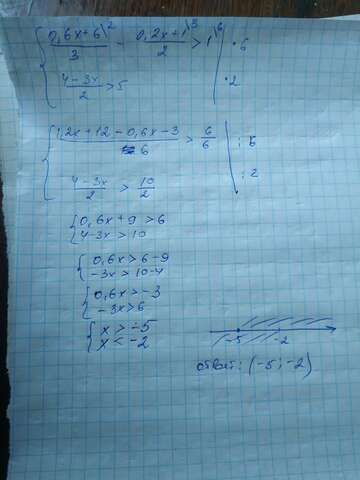 { (0,6x+6)/3 \2 - (0,2x+1)/2 \3 > 1 \6 | · 6
(4-3x)/2 > 5 | · 2
{ (1,2x+12-0,6x-3)/6 > 6/6 | : 6
(4-3x)/2 > 10/2 | : 2
{ 0,6x+9 > 6
4-3x > 10
{ 0,6x > 6-9
-3x > 10-4
{ 0,6x > -3
-3x > 6
{ x > -5
x < -2
-5 -2
ответ: (-5 ; -2)